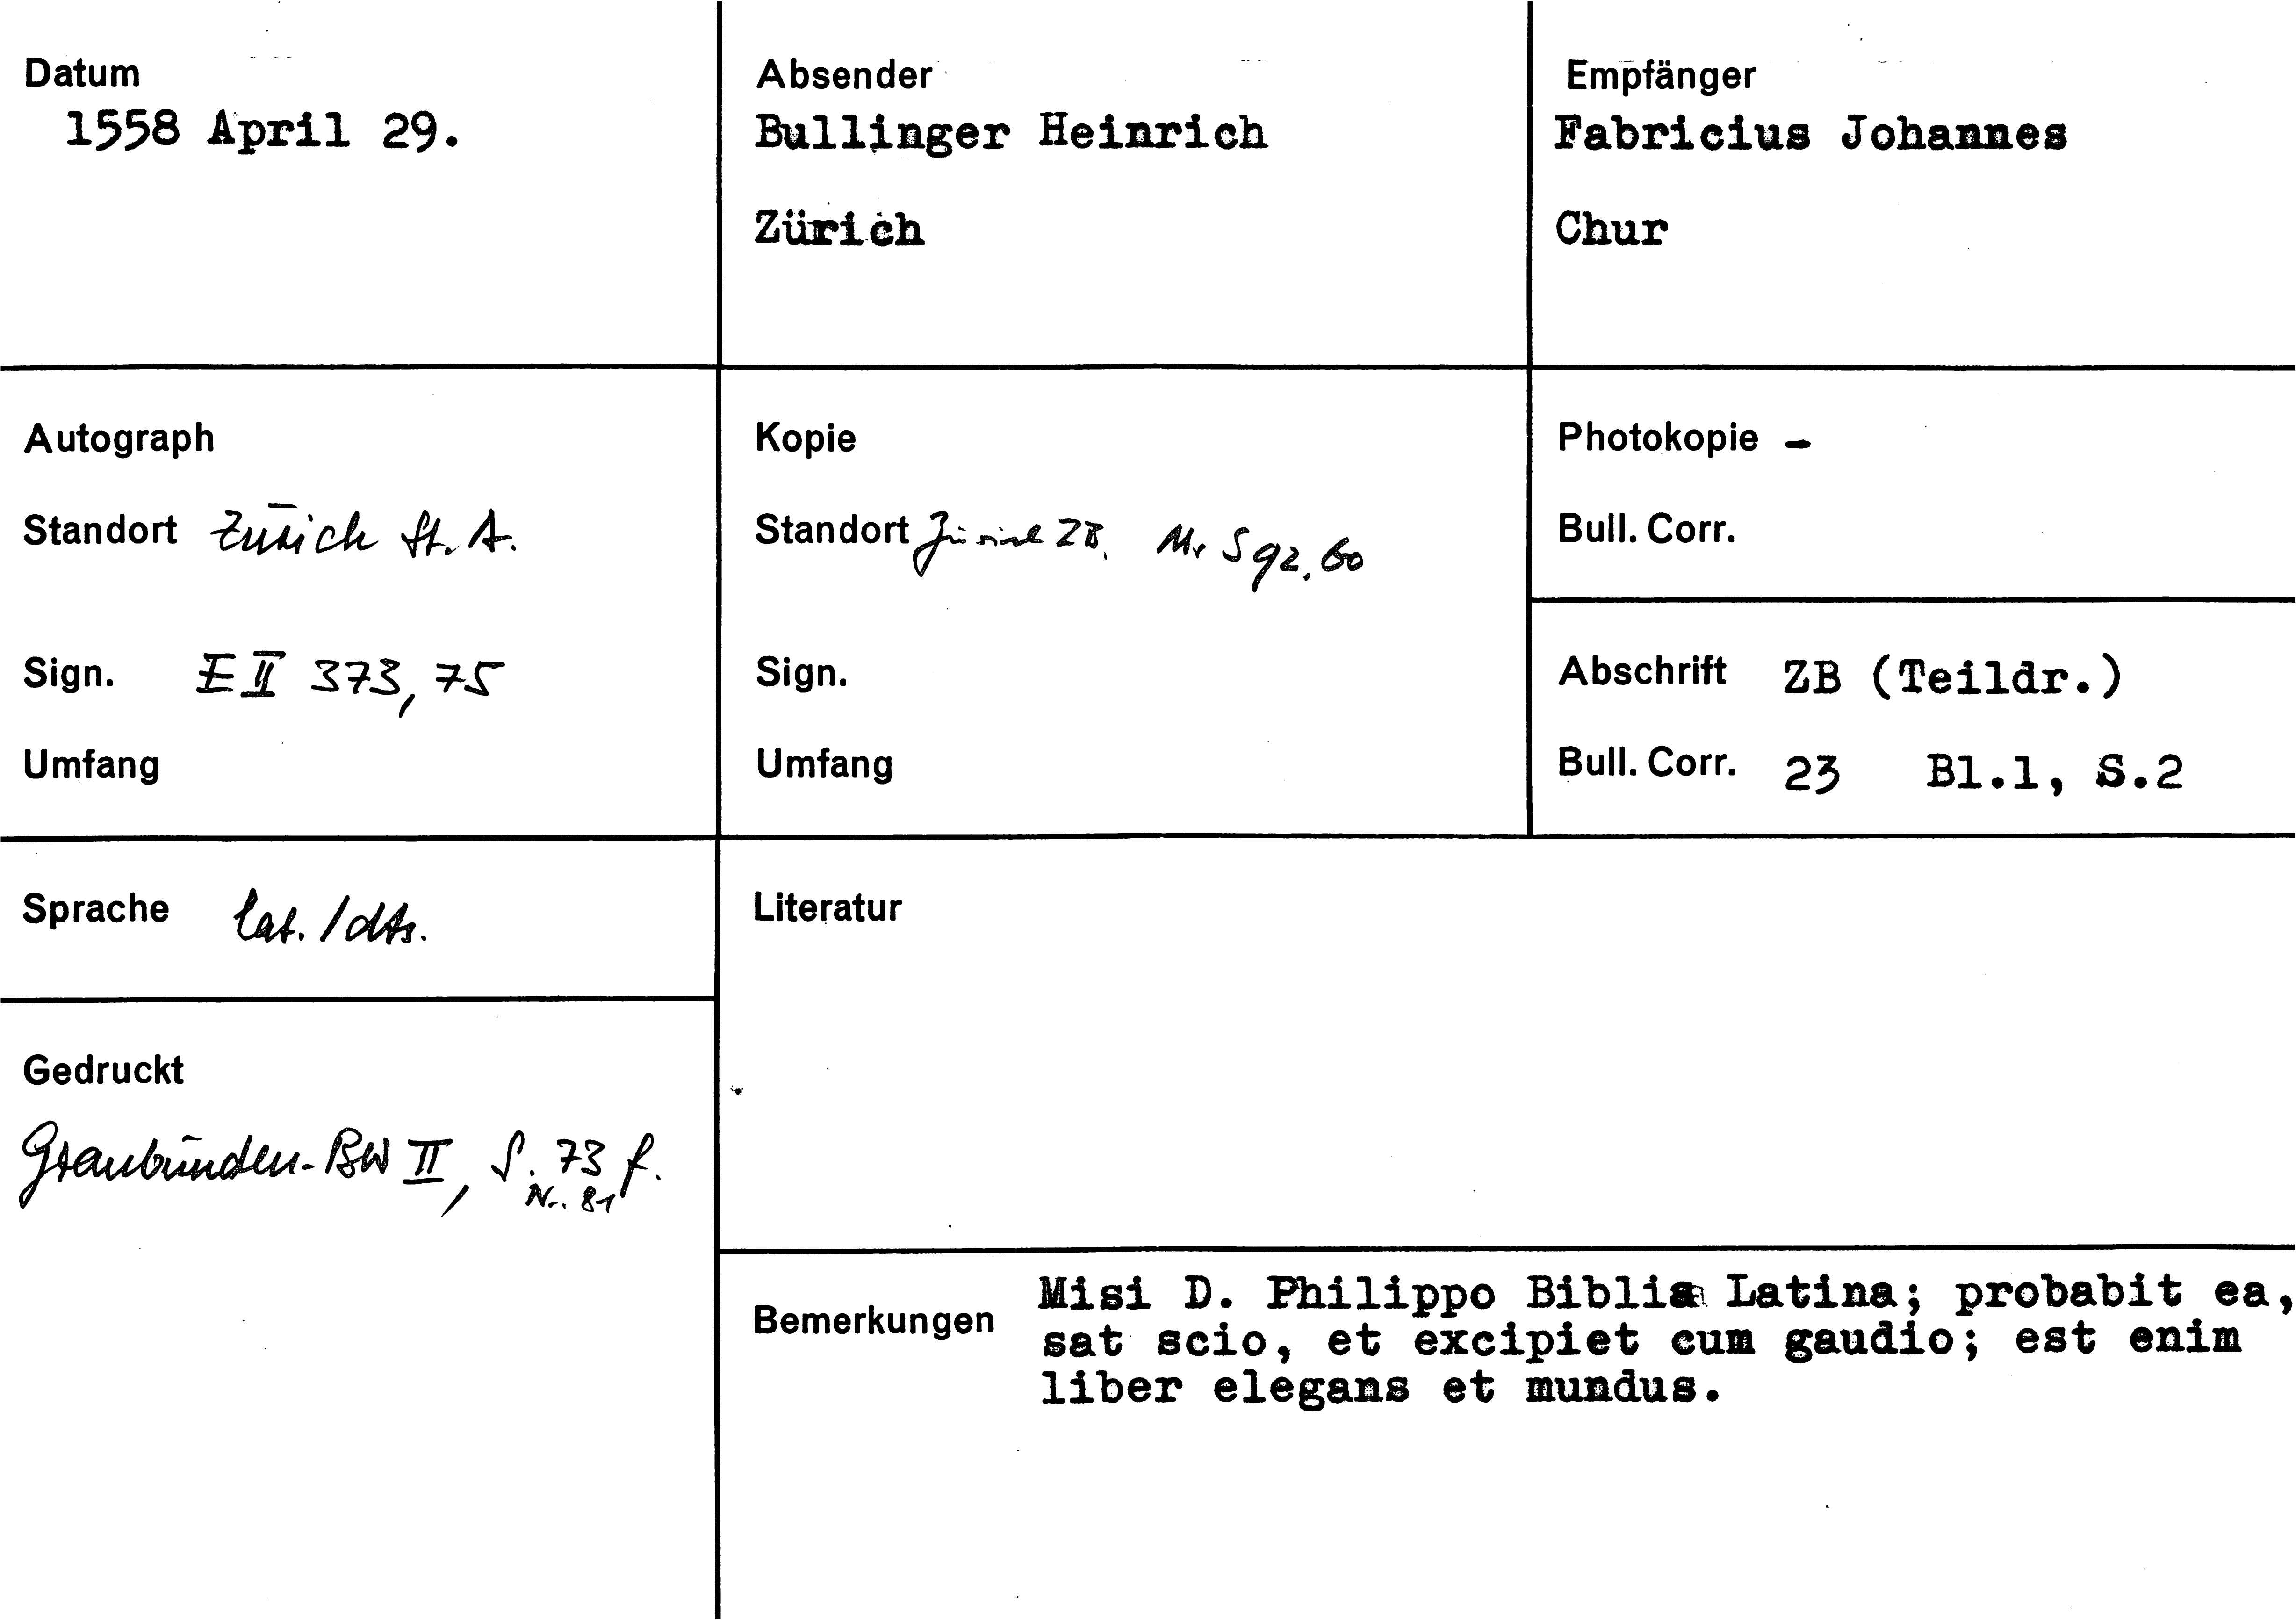 Datum
1558 April 29.
Absender
Bullinger Heinrich
Zürich
Empfänger
Fabricius Johannes
Chur
Autograph
Standort Zürich St. A.
Sign. E II 373, 75
Umfang
Kopie
Standort Zürich ZB. Ms S 92, 60
Sign.
Umfang
Photokopie -
Bull. Corr.
Abschrift ZB (Teildr.)
Bull. Corr. 23 Bl.1, S.2
Sprache lat. / dts.
Gedruckt
Graubünden-BW II, S. 73 f.
Nr. 81
Literatur
Bemerkungen
Misi D. Philippo Biblia Latina; probabit ea,
sat scio, et excipiet cum gaudio; est enim
liber elegans et mundus.